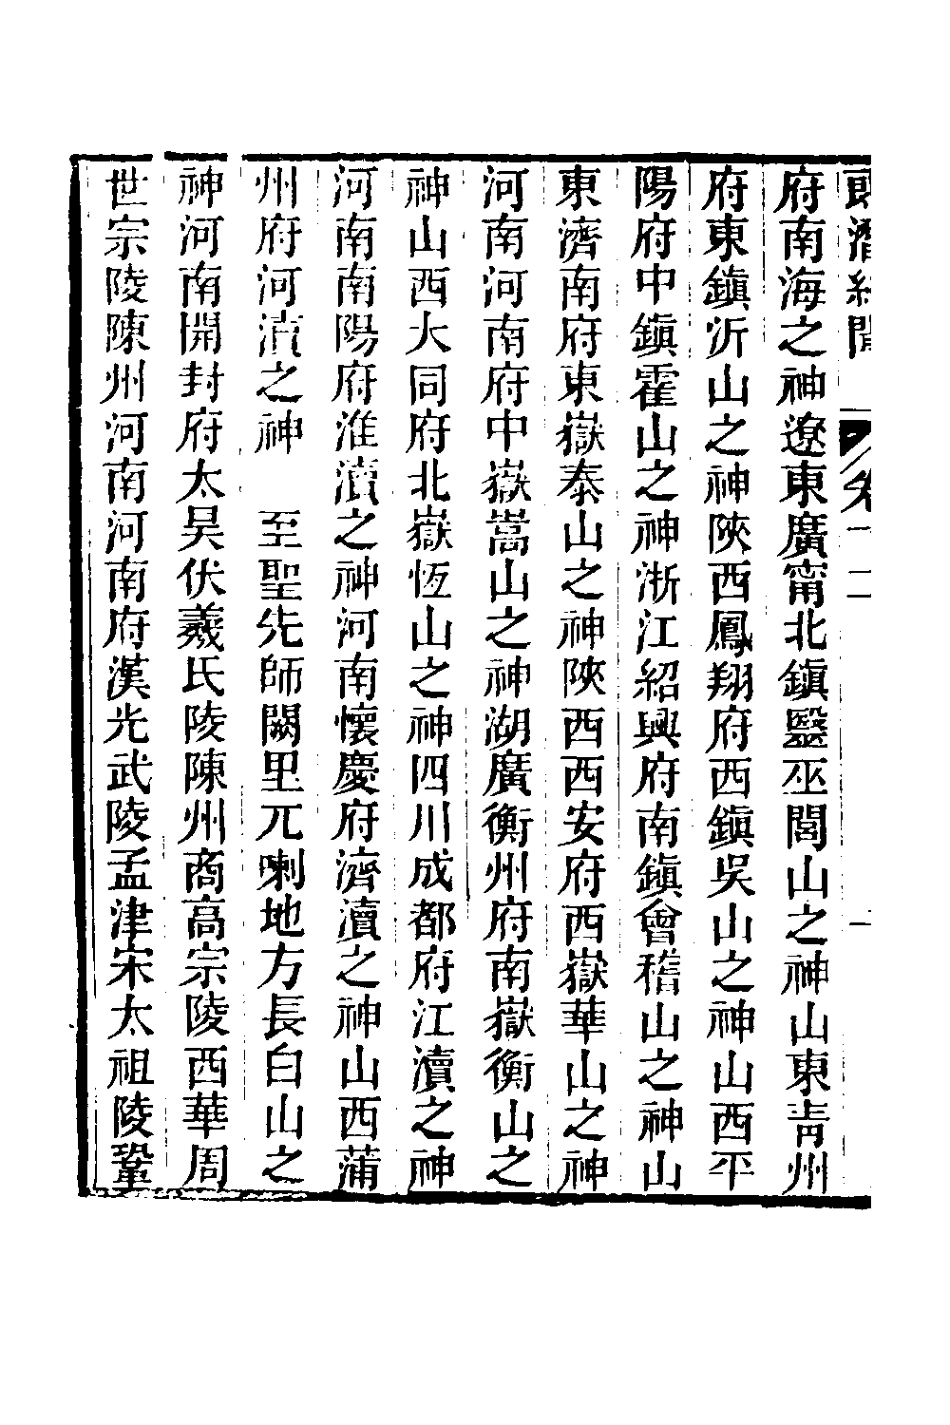 郎潛紀聞 卷十二 一
府南海之神遼東廣甯北鎮毉巫閭山之神山東青州
府東鎮沂山之神陝西鳳翔府西鎮吳山之神山西平
陽府中鎮霍山之神浙江紹興府南鎮會稽山之神山
東濟南府東嶽泰山之神陝西西安府西嶽華山之神
河南河南府中嶽嵩山之神湖廣衡州府南嶽衡山之
神山西大同府北嶽恆山之神四川成都府江瀆之神
河南南陽府淮瀆之神河南懷慶府濟瀆之神山西蒲
州府河瀆之神　至聖先師闕里兀喇地方長白山之
神河南開封府太昊伏羲氏陵陳州商高宗陵西華周
世宗陵陳州河南河南府漢光武陵孟津宋太祖陵鞏